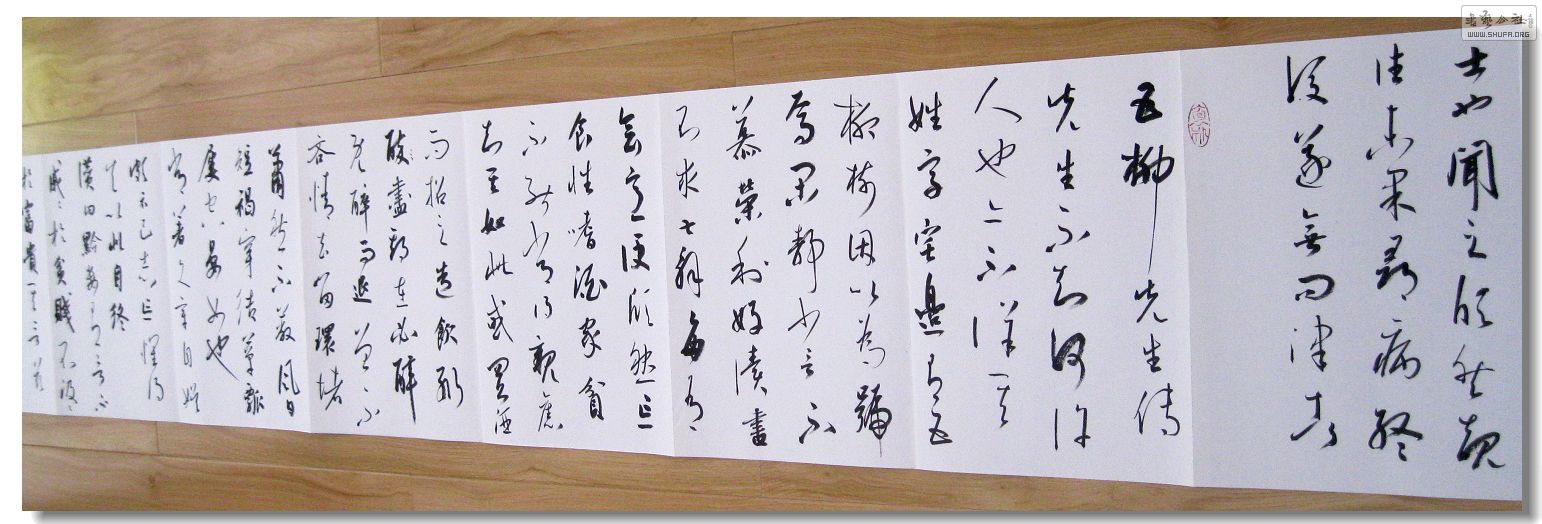 士也聞之欣然規
往未果尋病終
後遂無問津者
五柳先生傳
先生不知何許
人也亦不詳其
姓字宅邊有五
柳樹因以為號
焉閑靜少言不
慕榮利好讀書
不求甚解每有
會意便欣然忘
食性嗜酒家貧
不能常得親舊
知其如此或置酒
而招之造飲輒
盡期在必醉
既醉而退曾不
吝情去留環堵
蕭然不蔽風日
短褐穿結簞瓢
屢空晏如也
常著文章自娛
頗示己志忘懷得
失以此自終
贊曰黔婁有言不
戚戚於貧賤不汲汲
於富貴其言茲
書藝公社
WWW.SHUFA.ORG